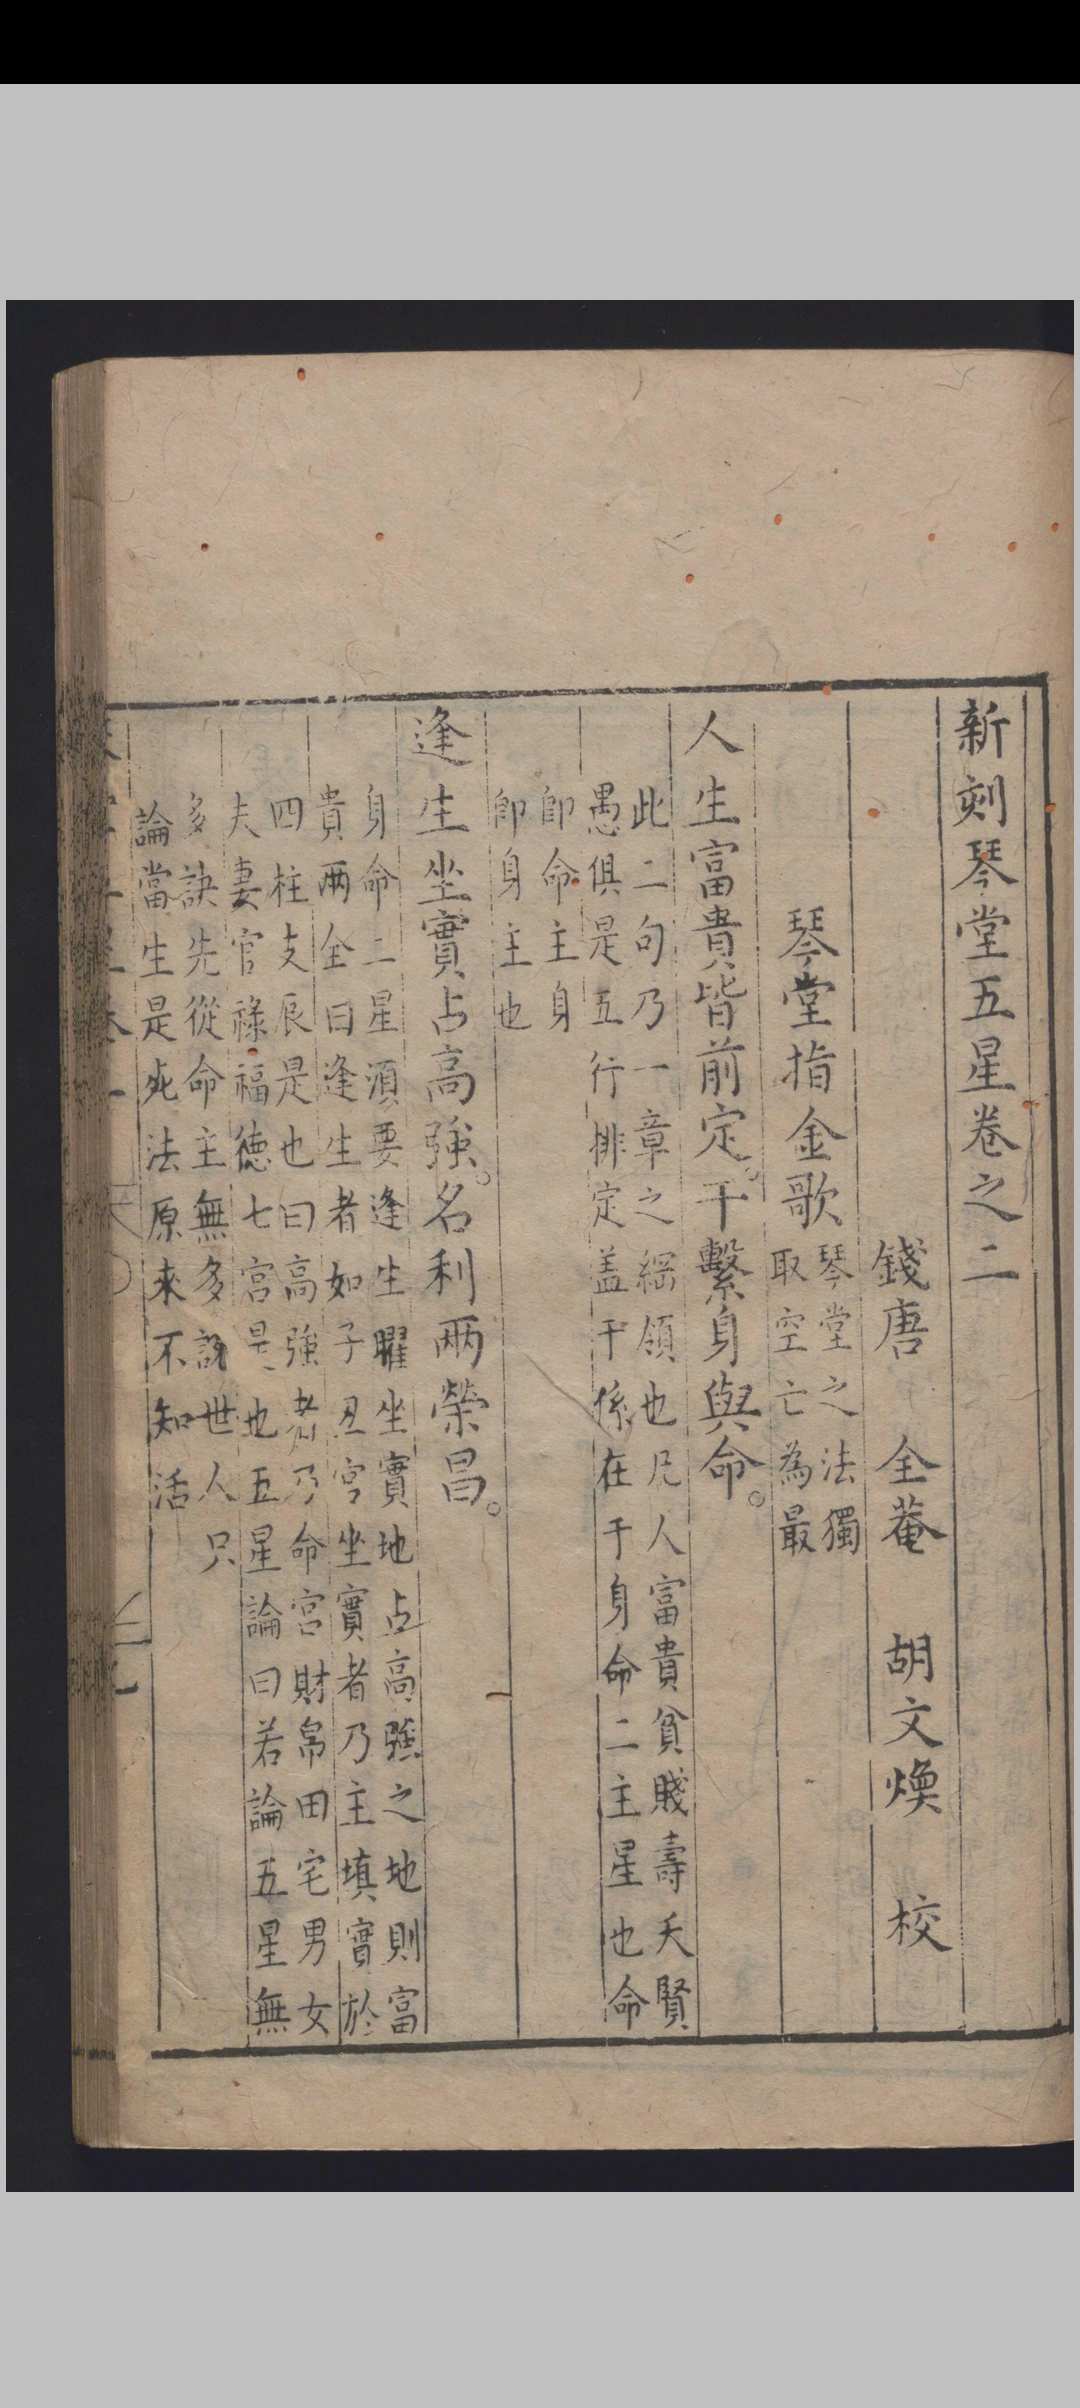 新刻琴堂五星卷之二
錢唐 全菴 胡文煥 校
琴堂指金歌
琴堂之法獨
取空亡為最
人生富貴皆前定。干繫身與命。
此二句乃一章之綱領也凡人富貴貧賤壽夭賢
愚俱是五行排定盖干係在于身命二主星也命
卽命主身
卽身主也
逢生坐實占高強。名利兩榮昌。
身命二星須要逢生曜坐實地占高強之地則富
貴兩全曰逢生者如子丑宮坐實者乃主填實於
四柱支辰是也曰高強者乃命宮財帛田宅男女
夫妻官祿福德七宮是也五星論曰若論五星無
多訣先從命主無多說世人只
論當生是死法原來不知活